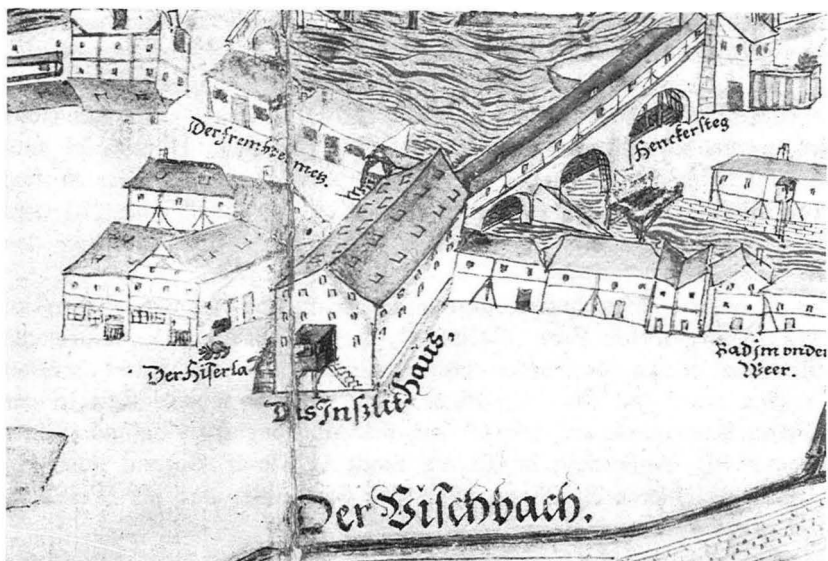 Der frembte metz.
Henckersteg
Der Hiserla
Das Inszlit haus,
Bad jm vnder
Weer.
Der Vischbach.